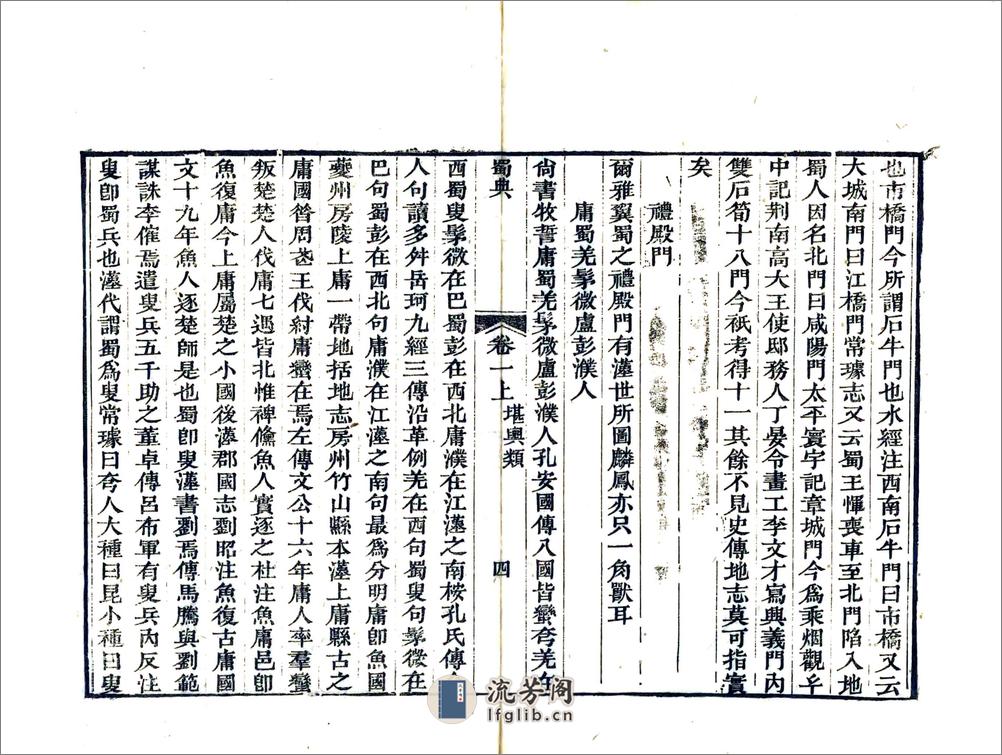 也市橋門今所謂石牛門也水經注西南石牛門曰市橋又云
大城南門曰江橋門常璩志又云蜀王惲喪車至北門陷入地
蜀人因名北門曰咸陽門太平寰宇記章城門今爲乘烟觀乎
中記荆南高大王使邸務人丁晏令畫工李文才寫興義門內
雙石筍十八門今祇考得十一其餘不見史傳地志莫可指實
矣
禮殿門
爾雅翼蜀之禮殿門有漢世所圖麟鳳亦只一角獸耳
庸蜀羌髳微盧彭濮人
尙書牧誓庸蜀羌髳微盧彭濮人孔安國傳八國皆蠻夸羌在
蜀典
卷一上
堪輿類
四
西蜀叟髳微在巴蜀彭在西北庸濮在江漢之南桉孔氏傳
人句讀多舛岳珂九經三傳沿革例羌在西句蜀叟句髳微在
巴句蜀彭在西北句庸濮在江漢之南句最爲分明庸卽魚國
夔州房陵上庸一帶地括地志房州竹山縣本漢上庸縣古之
庸國昝周武王伐紂庸蠻在焉左傳文公十六年庸人率羣蠻
叛楚楚人伐庸七遇皆北惟裨儵魚人實逐之杜注魚庸邑卽
魚復庸今上庸屬楚之小國後漢郡國志劉昭注魚復古庸國
文十九年魚人逐楚師是也蜀卽叟漢書劉焉傳馬騰與劉範
謀誅李傕焉遣叟兵五千助之董卓傳呂布軍有叟兵內反注
叟卽蜀兵也漢代謂蜀爲叟常璩曰夸人大種曰昆小種曰叟
流芳阁
lfglib.cn